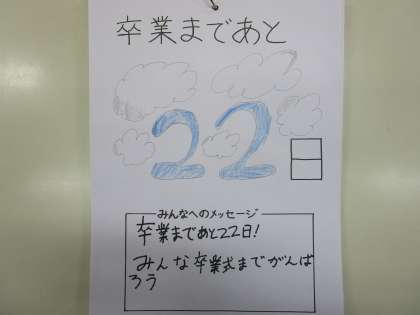 卒業まであと
22日
みんなへのメッセージ
卒業まであと22日!
みんな卒業式までがんば
ろう